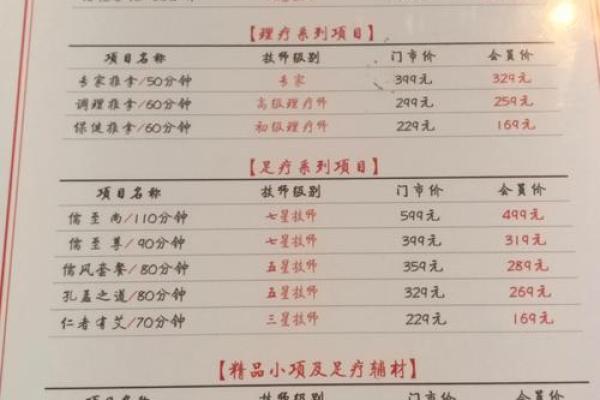 【理疗系列项目】
项目名称 技师级别 门市价 会员价
专家推拿/50分钟 专家 399元 329元
调理推拿/60分钟 高级理疗师 299元 259元
保健推拿/60分钟 初级理疗师 229元 169元
【足疗系列项目】
项目名称 技师级别 门市价 会员价
儒至尚/110分钟 七星技师 599元 499元
儒至尊/90分钟 七星技师 399元 319元
儒风套餐/80分钟 五星技师 359元 289元
孔孟之道/80分钟 五星技师 329元 269元
仁者有艾/70分钟 三星技师 229元 169元
【精品小项及足疗辅材】
项目名称 技师级别 门市价 会员价